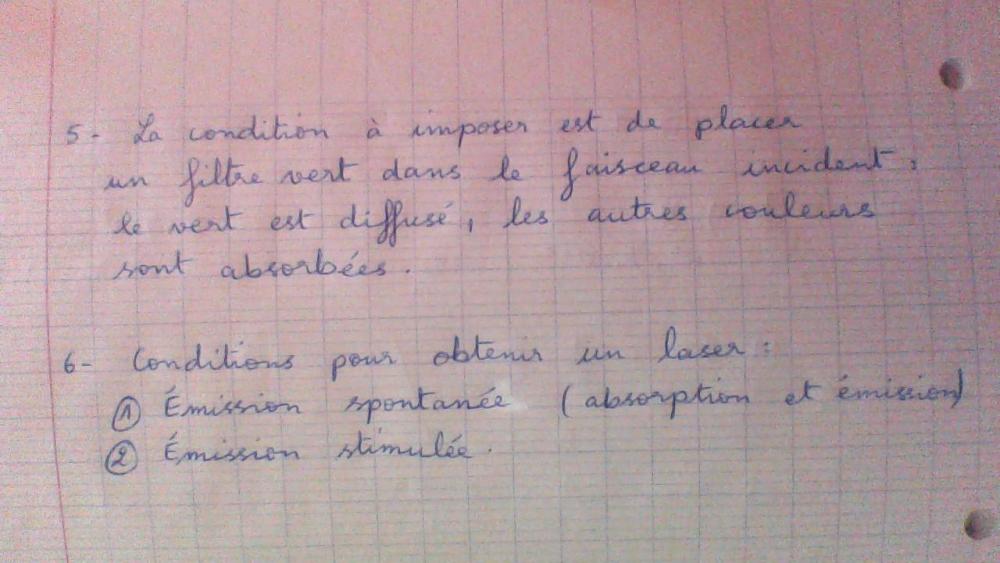 5- La condition à imposer est de placer
un filtre vert dans le faisceau incident :
le vert est diffusé, les autres couleurs
sont absorbées.
6- Conditions pour obtenir un laser :
① Émission spontanée (absorption et émission)
② Émission stimulée.